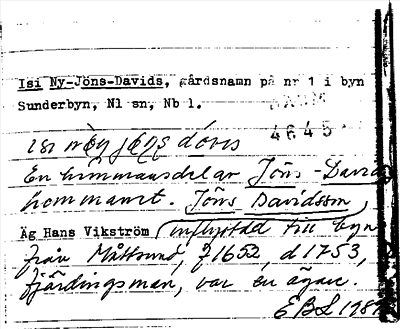 Isi Ny-Jöns-Davids, gårdsnamn på nr 1 i byn
Sunderbyn, Nl sn, Nb l.
4645
En hemmansdel av Jöns-Davids
hemmanet. Jöns Davidsson,
Äg Hans Vikström inflyttad till byn
från Måttsund, f 1652, d 1753,
fjärdingsman, var en ägare.
EBL 198